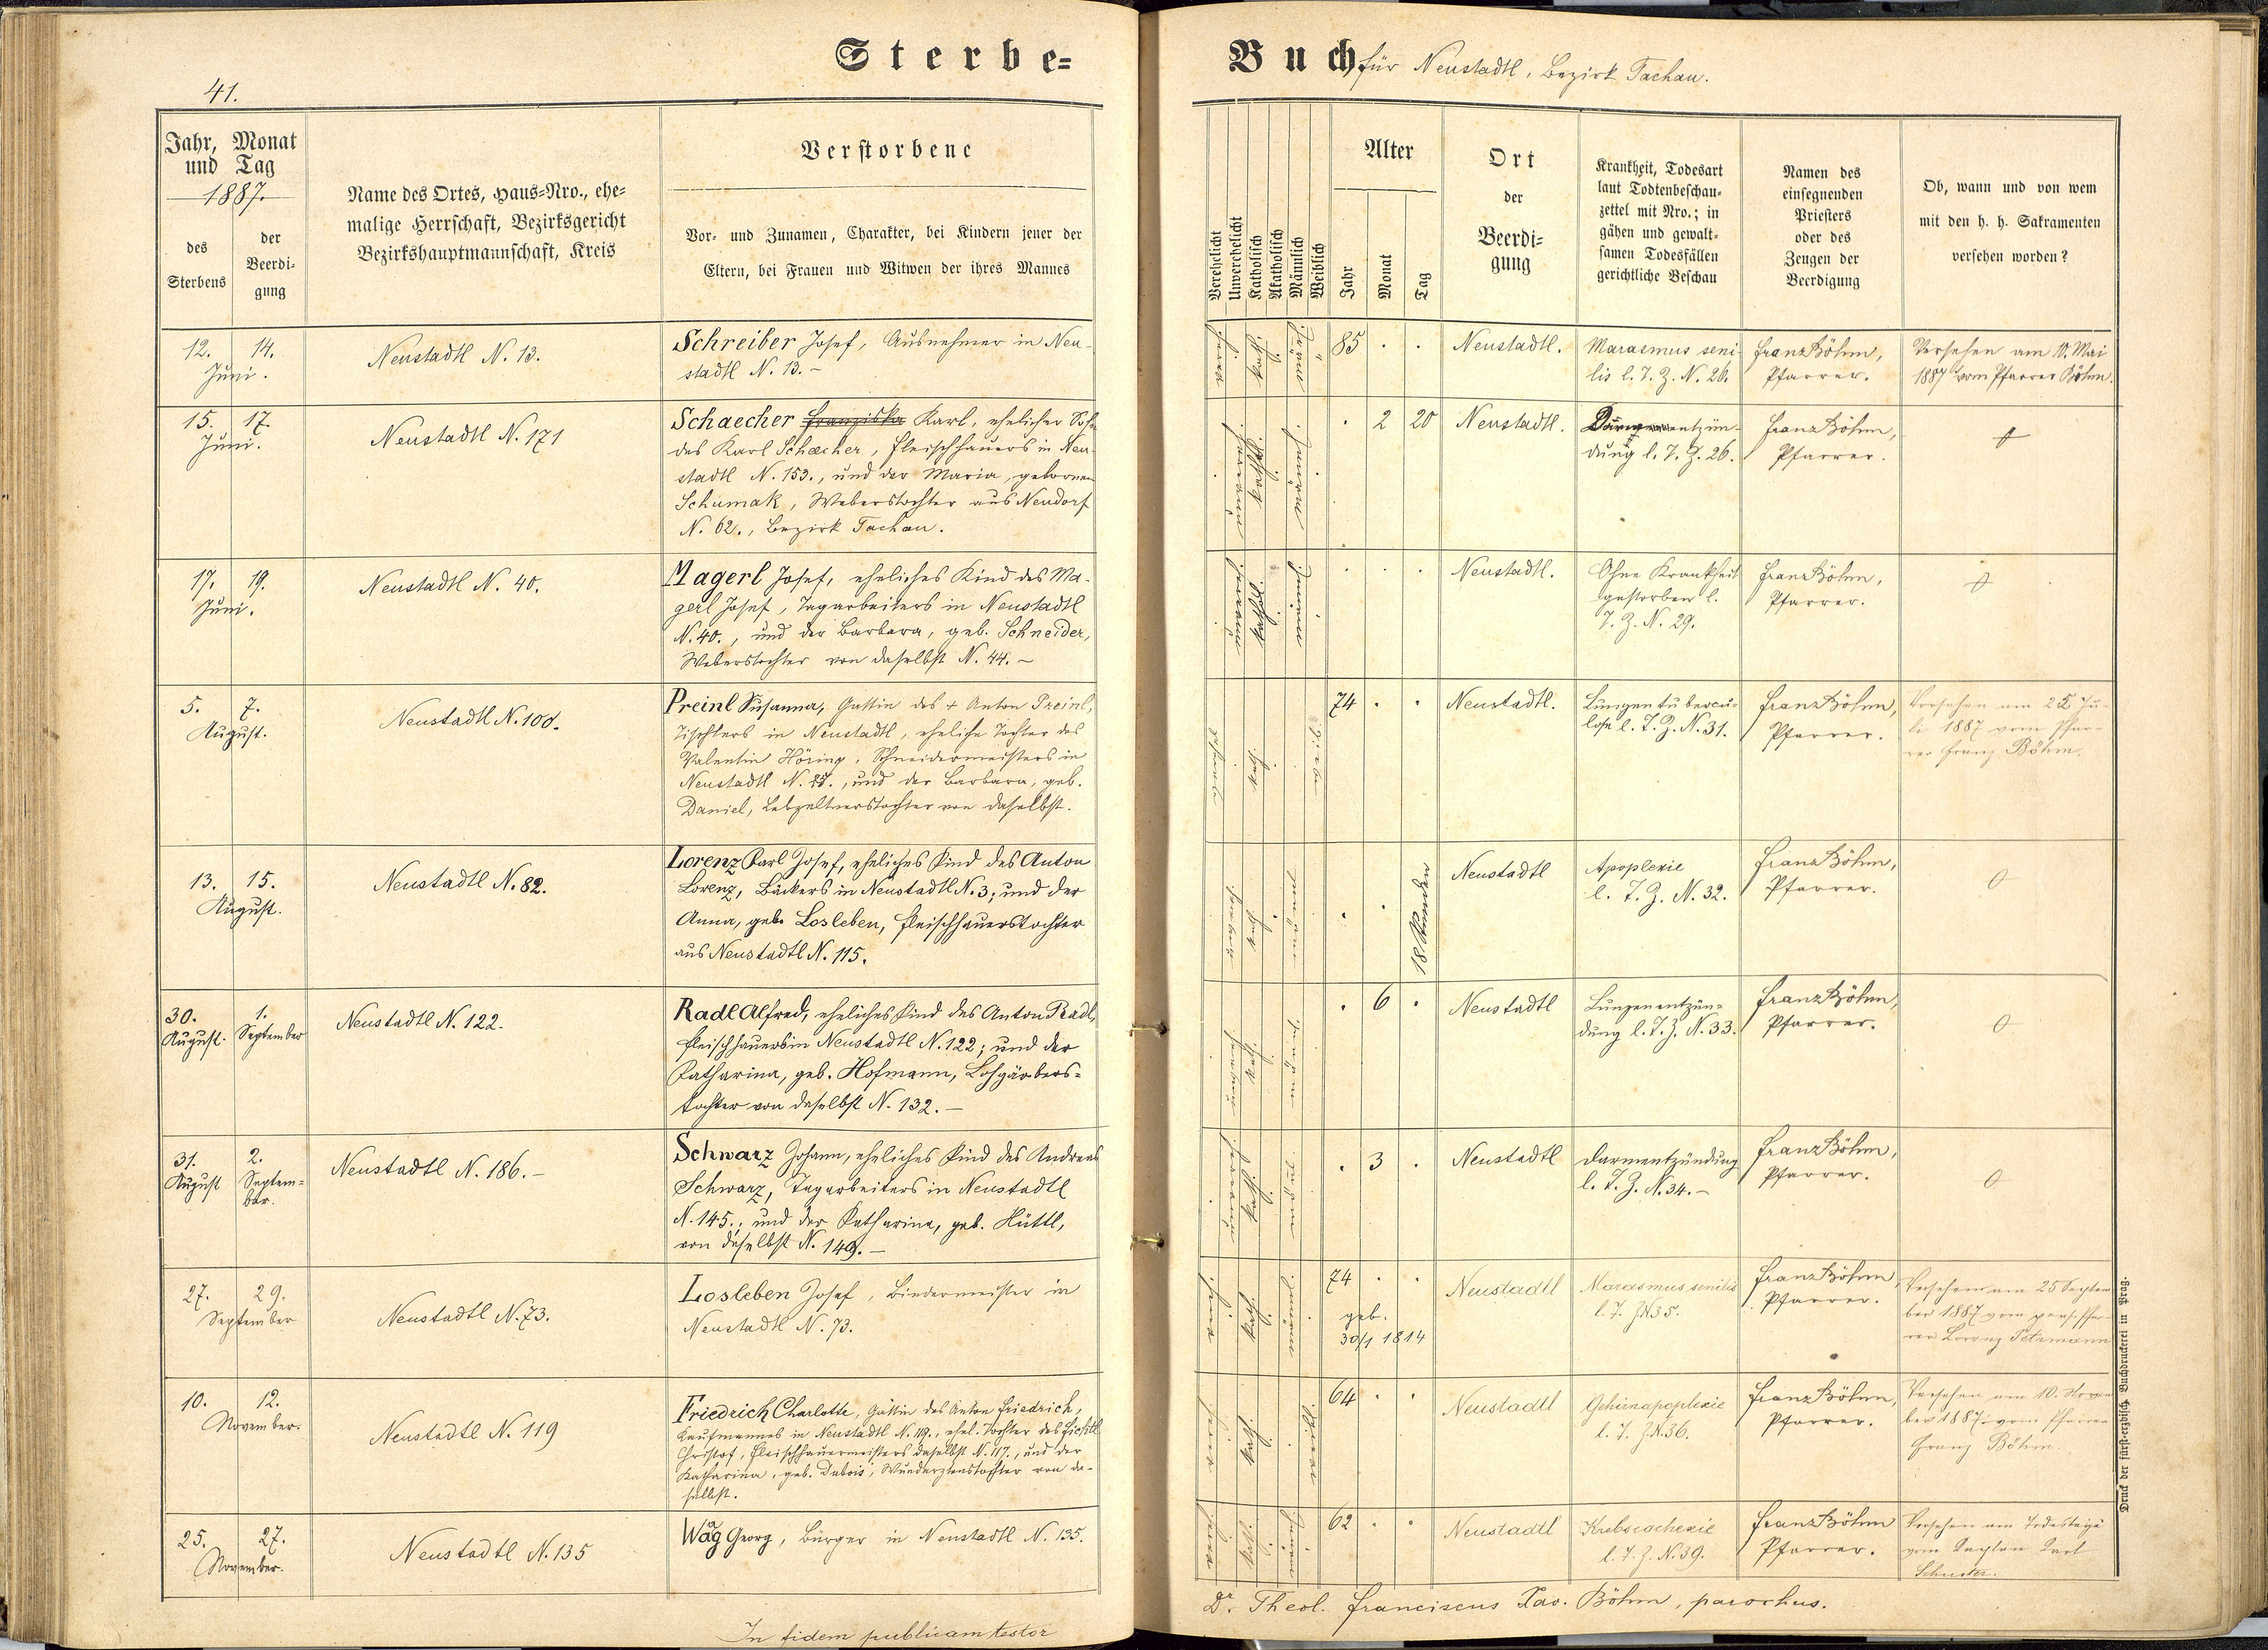 Sterbe=
41.
Jahr, Monat
und Tag
1887.
des
Sterbens
der
Beerdi-
gung
Name des Ortes, Haus=Nro., ehe=
malige Herrschaft, Bezirksgericht
Bezirkshauptmannschaft, Kreis
Verstorbene
Vor- und Zunamen, Charakter, bei Kindern jener der
Eltern, bei Frauen und Witwen der ihres Mannes
12. 14.
Juni.
Neustadtl N. 13.
Schreiber Josef, Ausnehmer in Neu-
stadtl N. 13. –
15. 17.
Juni.
Neustadtl N. 171
Schaecher Franziska Karl, ehelicher Sohn
des Karl Schaecher, Fleischhauers in Neu-
stadtl N. 153., und der Maria, gebornen
Schumak, Weberstochter aus Neudorf
N. 62., Bezirk Tachau.
17. 19.
Juni.
Neustadtl N. 40.
Magerl Josef, eheliches Kind des Ma-
gerl Josef, Tagarbeiters in Neustadtl
N. 40., und der Barbara, geb. Schneider,
Weberstochter von daselbst N. 44. –
5. 7.
August.
Neustadtl N. 100.
Preinl Susanna, Gattin des + Anton Preinl,
Tischlers in Neustadtl, eheliche Tochter des
Valentin Höring, Schneidermeisters in
Neustadtl N. 87., und der Barbara, geb.
Daniel, Lebzeltnerstochter von daselbst.
13. 15.
August.
Neustadtl N. 82.
Lorenz Karl Josef, eheliches Kind des Anton
Lorenz, Bäckers in Neustadtl N. 3; und der
Anna, geb. Losleben, Fleischhauerstochter
aus Neustadtl N. 115.
30. 1.
August. September
Neustadtl N. 122.
Radl Alfred, eheliches Kind des Anton Radl,
Fleischhauers in Neustadtl N. 122; und der
Katharina, geb. Hofmann, Lohgärbers=
tochter von daselbst N. 132. –
31. 2.
August Septem=
ber.
Neustadtl N. 186. –
Schwarz Johann, eheliches Kind des Andreas
Schwarz, Tagarbeiters in Neustadtl
N. 145.; und der Katharina, geb. Hüttl,
von daselbst N. 149. –
27. 29.
September
Neustadtl N. 73.
Losleben Josef, Bindermeister in
Neustadtl N. 73.
10. 12.
November.
Neustadtl N. 119
Friedrich Charlotte, Gattin des Anton Friedrich,
Kaufmannes in Neustadtl N. 119., ehel. Tochter des Fichtl
Christof, Fleischhauermeisters daselbst N. 117., und der
Katharina, geb. Dubois, Wundarztenstochter von da-
selbst.
25. 27.
November.
Neustadtl N. 135
Wäg Georg, Bürger in Neustadtl N. 135.
In fidem publicam testor
Buch für Neustadtl, Bezirk Tachau.
Verehelicht
Unverehelicht
Katholisch
Akatholisch
Männlich
Weiblich
Alter
Jahr
Monat
Tag
Ort
der
Beerdi-
gung
Krankheit, Todesart
laut Todtenbeschau-
zettel mit Nro.; in
gähen und gewalt-
samen Todesfällen
gerichtliche Beschau
Namen des
einsegnenden
Priesters
oder des
Zeugen der
Beerdigung
Ob, wann und von wem
mit den h. h. Sakramenten
versehen worden?
85 . . Neustadtl.
Marasmus seni-
lis l. T. Z. N. 26.
Franz Böhm,
Pfarrer.
Versehen am 10. Mai
1887 vom Pfarrer Böhm.
. 2 20 Neustadtl.
entzün-
dung l. T. Z. 26.
Franz Böhm,
Pfarrer.
. . . Neustadtl.
Ohne Krankheit
gestorben l.
T. Z. N. 29.
Franz Böhm,
Pfarrer.
74 . . Neustadtl.
Lungentubercu-
lose l. T. Z. N. 31.
Franz Böhm,
Pfarrer.
Versehen am 25 Ju-
li 1887 vom Pfar-
rer Franz Böhm.
. . 18 Stunden
Neustadtl
Apoplexie
l. T. Z. N. 32.
Franz Böhm,
Pfarrer.
0
. 6 . Neustadtl
Lungenentzün=
dung l. T. Z. N. 33.
Franz Böhm,
Pfarrer.
0
. 3 . Neustadtl
Darmentzündung
l. T. Z. N. 34. –
Franz Böhm,
Pfarrer.
0
74 . .
geb.
30/1 1814
Neustadtl
Marasmus senilis
l. T. Z. N 35.
Franz Böhm
Pfarrer.
Versehen am 25 Septem
ber 1887 vom pens. Pfar-
rer Lorenz Petrmann
64 . . Neustadtl
Gehirnapoplexie
l. T. Z. N. 36.
Franz Böhm,
Pfarrer.
Versehen am 10. Novem
ber 1887 vom Pfarrer
Franz Böhm.
62 . . Neustadtl
Krebscachexie
l. T. Z. N. 39.
Franz Böhm
Pfarrer.
Versehen am Todestage
vom Kaplan Karl
Schuster.
Dr. Theol. Franciscus Xav. Böhm, parochus.
Druck der fürst-erzbisch. Buchdruckerei in Prag.